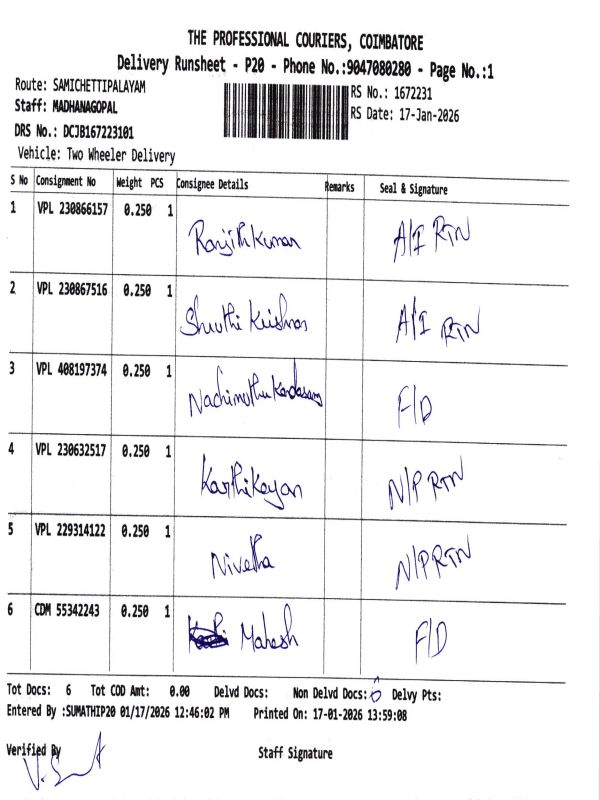 THE PROFESSIONAL COURIERS, COIMBATORE
Delivery Runsheet - P20 - Phone No.:9047080280 - Page No.:1
Route: SAMICHETTIPALAYAM
RS No.: 1672231
Staff: MADHANAGOPAL
RS Date: 17-Jan-2026
DRS No.: DCJB167223101
Vehicle: Two Wheeler Delivery
S No Consignment No Weight PCS Consignee Details Remarks Seal & Signature
1 VPL 230866157 0.250 1 Ranjith Kumar A/I RTN
2 VPL 230867516 0.250 1 Shruthi Krishnan A/I RTN
3 VPL 408197374 0.250 1 Nachimuthu Kandasamy F/D
4 VPL 230632517 0.250 1 Karthikeyan N/P RTN
5 VPL 229314122 0.250 1 Nivetha N/P RTN
6 CDM 55342243 0.250 1 Mahesh F/D
Tot Docs: 6 Tot COD Amt: 0.00 Delvd Docs: Non Delvd Docs: 6 Delvy Pts:
Entered By :SUMATHIP20 01/17/2026 12:46:02 PM Printed On: 17-01-2026 13:59:08
Verified By Staff Signature